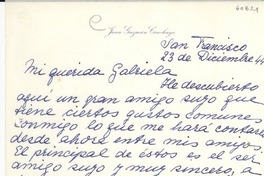 60821
Juan Guzmán Cruchaga
San Francisco
23 de Diciembre 44
Mi querida Gabriela
He descubierto
aquí un gran amigo suyo que
tiene ciertos gustos comunes
conmigo lo que me hará contarlo
desde ahora entre mis amigos.
El principal de éstos es el ser
amigo suyo y muy sincero, a